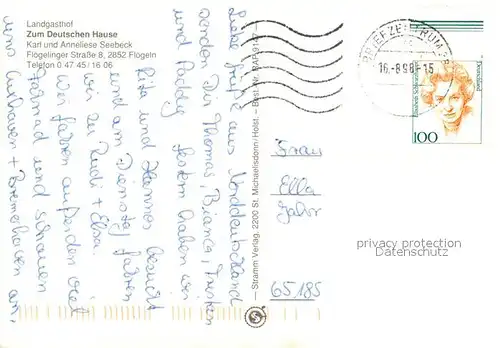 Landgasthof
Zum Deutschen Hause
Karl und Anneliese Seebeck
Flögelinger Straße 8, 2852 Flögeln
Telefon 0 47 45 / 16 06
Liebe Grüße aus Norddeutschland
senden Dir Thomas, Bianca, Kirsten
und Paddy. Gestern haben wir
Rita und Hannes besucht
und am Dienstag fahren
wir zu Rudi + Elsa.
Wir fahren außerdem viel
Fahrrad und schauen
uns Cuxhaven + Bremerhaven an.
Stramm Verlag, 2200 St. Michaelisdonn/Holst. – Best.-Nr.
BRIEFZENTRUM
16.-8.98-15
Deutschland
100
Frau
Ella
Jahr
65185
privacy protection
Datenschutz